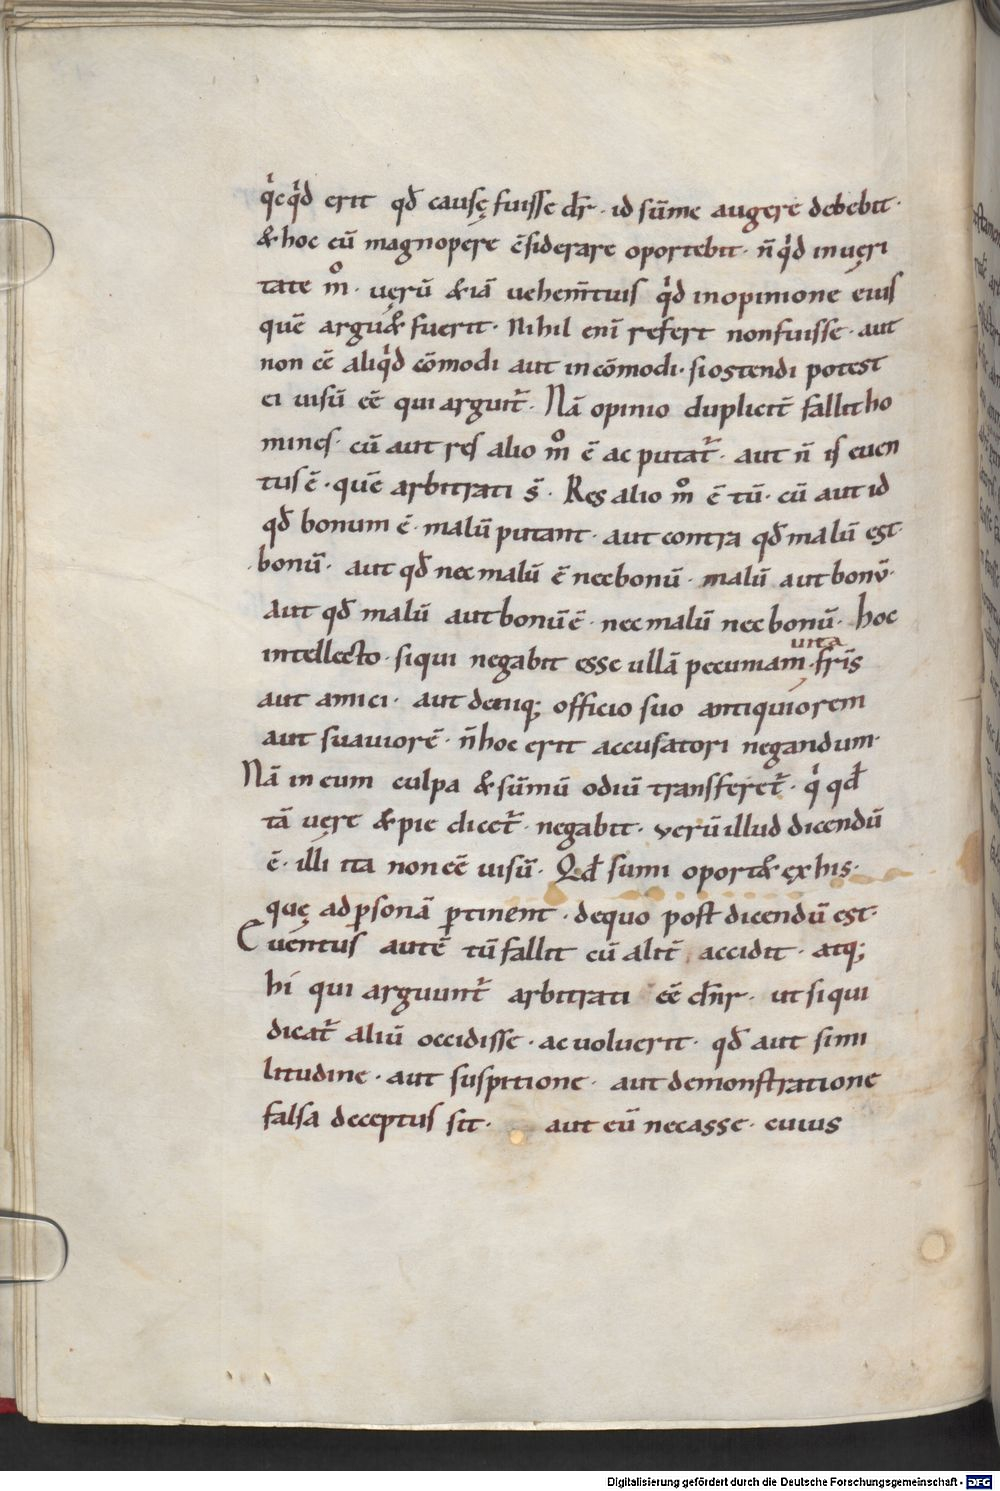 q̇cq̇d erit qđ causę fuisse dr̄ · id sūme augere debebit ·
& hoc cū magnopere c̄siderare oportebit · n̄ q̇d in uęri
tate m̊ · uęrū & iā uehem̄tius q̇d in opinione eius
quē argu& fuerit · Nihil eni̅ refert non fuisse · aut
non eē aliq̇d cōmodi aut incōmodi · si ostendi potest
ei uisū eē qui arguit̄ · Nā opinio duplicit̄ fallit ho
mines · cū aut res alio m̊ ē ac putat̄ · aut n̄ is euen
tus ē · quē arbitrati s̄ · Res alio m̊ ē tū · cū aut id
qđ bonum ē · malū putant · aut contra qđ malū est ·
bonū · aut qđ nec malū ē nec bonū · malū aut bonū ·
aut qđ malū aut bonū ē · nec malū nec bonū · hoc
intellecto · si qui negabit esse ullā pecuniam · uita fr̄is
aut amici · aut deniq; officio suo antiquiorem
aut suauiorē · n̄ hoc erit accusatori negandum ·
Nā in eum culpa & sūmū odiū transferet̄ · q̇ qđ
tā uęre & pie dicet̄ · negabit · verū illud dicendū
ē · illi ita non eē uisū · Qđ sumi oport& ęx his ·
quę ad p̱sonā p̱tinent · de quo post dicendū est ·
Euentus autē tū fallit cū alit̄ accidit · atq;
hi qui arguunt̄ arbitrati eē dn̄r · ut si qui
dicat̄ aliū occidisse · ac uoluerit · qđ aut simi
litudine · aut suspitione · aut demonstratione
falsa deceptus sit · aut eū necasse · cuius
Digitalisierung gefördert durch die Deutsche Forschungsgemeinschaft - DFG